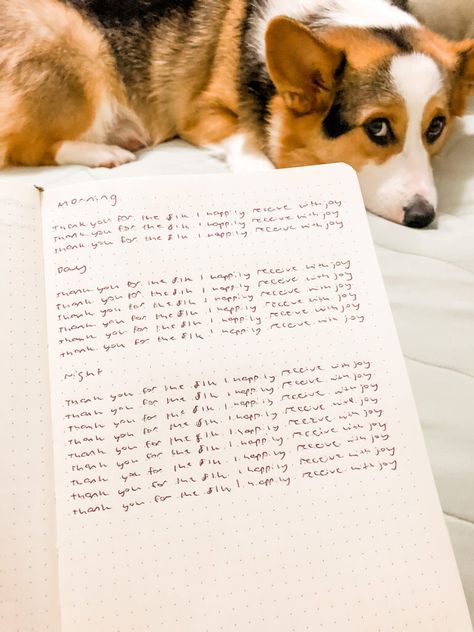 Morning
Thank you for the $1k I happily receive with joy
Thank you for the $1k I happily receive with joy
Thank you for the $1k I happily receive with joy
Day
Thank you for the $1k I happily receive with joy
Thank you for the $1k I happily receive with joy
Thank you for the $1k I happily receive with joy
Thank you for the $1k I happily receive with joy
Thank you for the $1k I happily receive with joy
Thank you for the $1k I happily receive with joy
Night
Thank you for the $1k I happily receive with joy
Thank you for the $1k I happily receive with joy
Thank you for the $1k I happily receive with joy
Thank you for the $1k I happily receive with joy
Thank you for the $1k I happily receive with joy
Thank you for the $1k I happily receive with joy
Thank you for the $1k I happily receive with joy
Thank you for the $1k I happily receive with joy
Thank you for the $1k I happily receive with joy